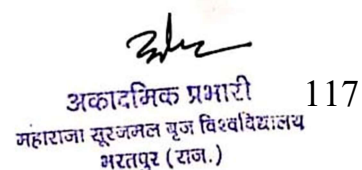 अकादमिक प्रभारी 117
महाराजा सूरजमल बृज विश्वविद्यालय
भरतपुर (राज.)